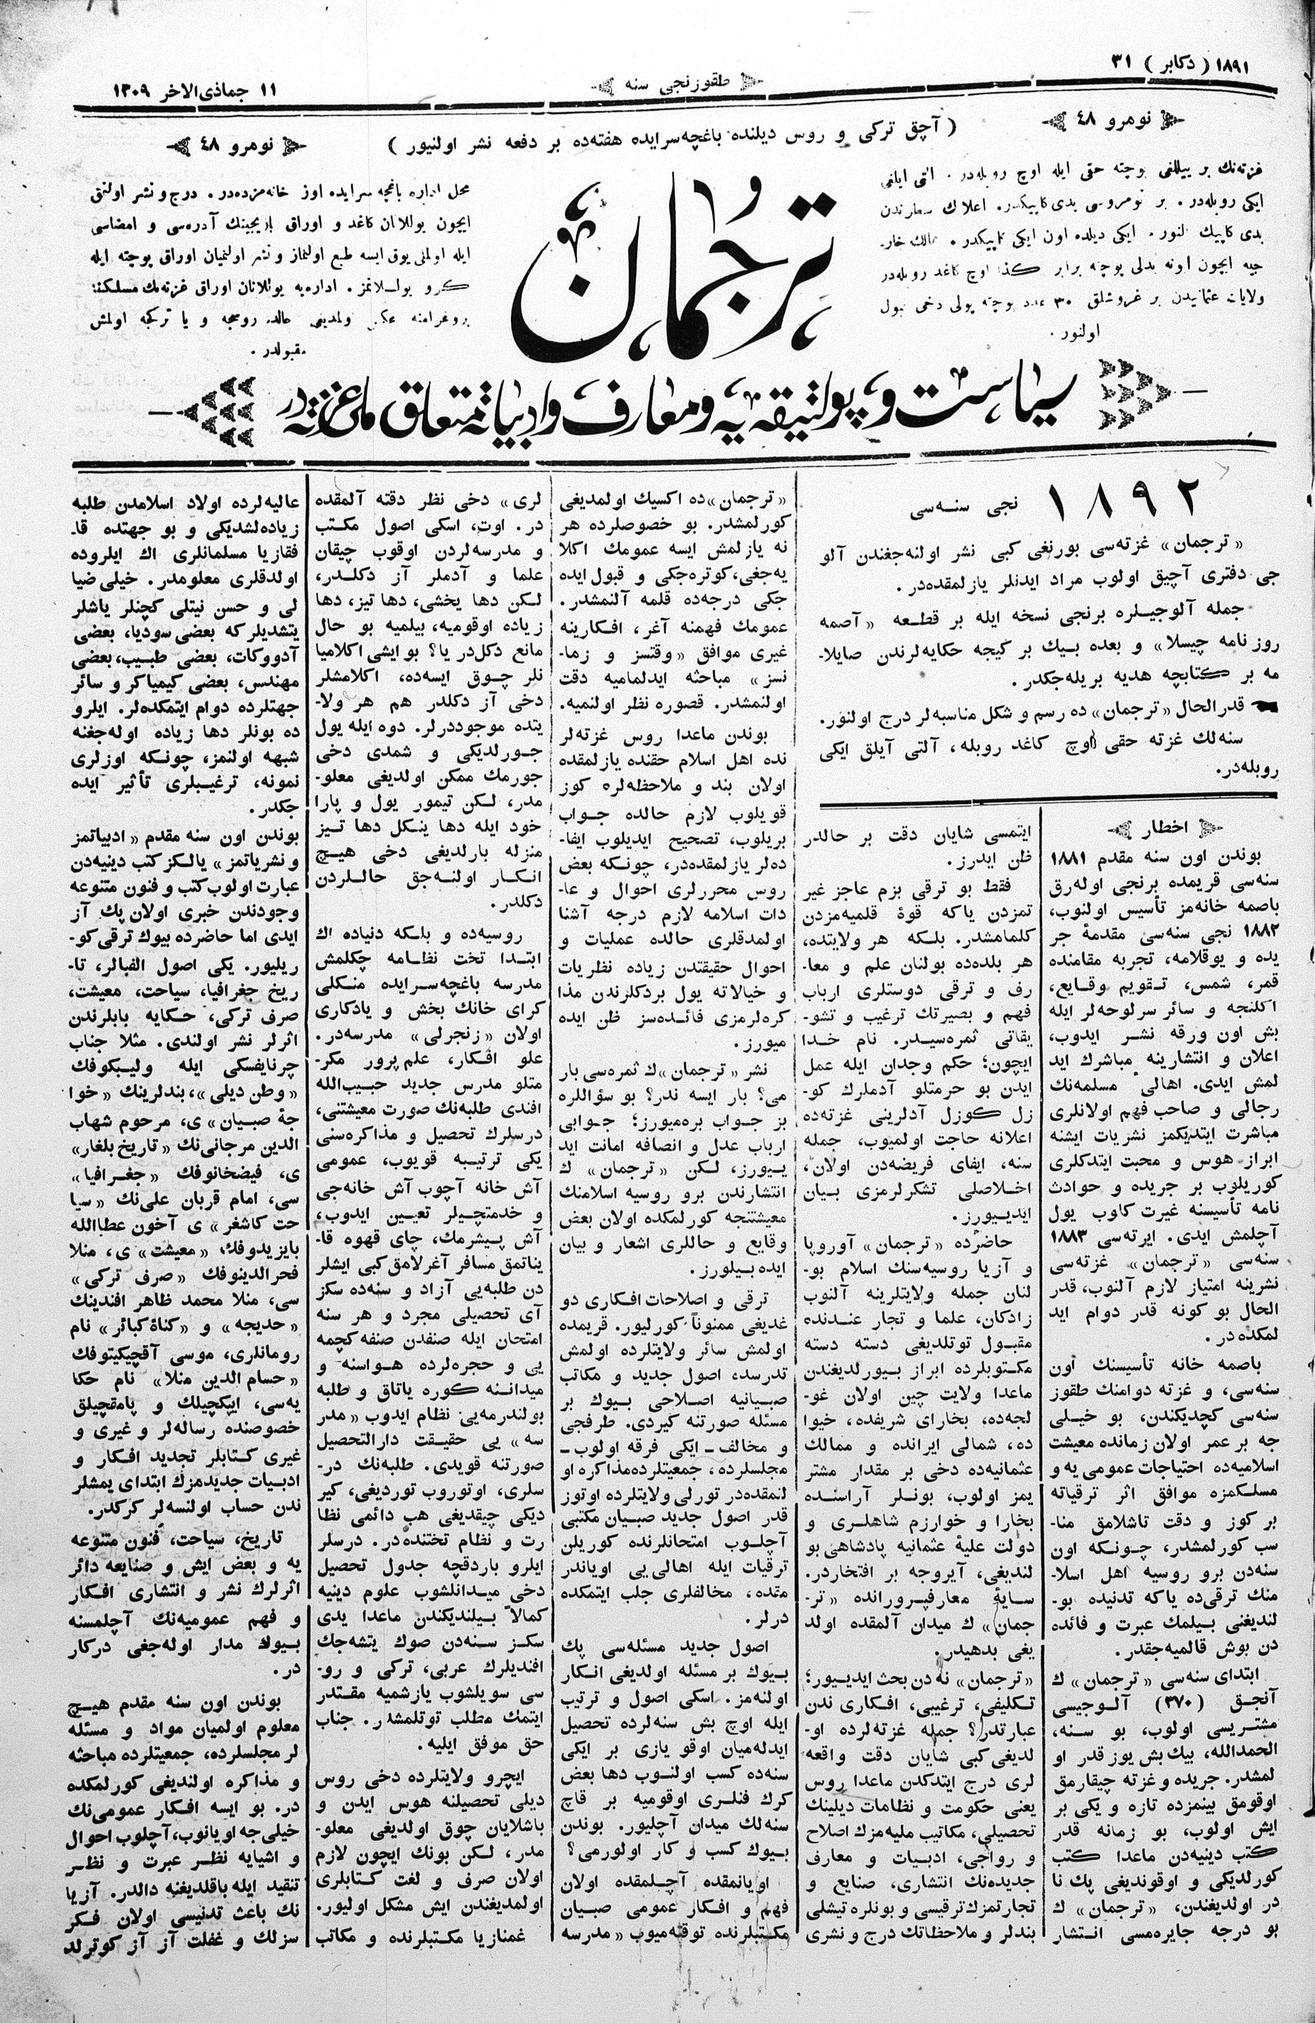 ۱۸۹۱ ( دكابر ) ۳۱
طقوزنجی سنه
۱۱ جماذی الاخر ۱۳۰۹
نومرو ٤٨
( آچق تركی و روس دیلنده باغچه‌سرایده هفته‌ده بر دفعه نشر اولنیور )
نومرو ٤٨
غزته‌نك بر ییللغی پوچته حقی ایله اوچ روبله‌در . التی ایلغی
ایكی روبله‌در . بر نومروسی یدی كاپیكدر . اعلانك سطرندن
یدی كاپیك النور . ایكی دیلده اون ایكی كاپیكدر . ممالك خار-
جیه ایچون اونه بدلی پوچته برابر اوچ كاغد روبله‌در
ولایات عثمانیدن بر غروشلق ۳۰ عدد پوچته پولی دخی قبول
اولنور .
ترجمان
محل اداره باغچه سرایده اوز خانه‌مزده‌در . درج و نشر اولنق
ایچون یوللانان كاغد و اوراق یازیجینك آدره‌سی و امضاسی
ایله اولملی یوق ایسه طبع اولنماز و نشر اولنمیان اوراق پوچته ایله
كرو یوللانمز . اداره‌یه یوللانان اوراق غزته‌مك مسلكنه
پروغرامنه عكس ولمدیغی حالده روسجه و یا تركجه اولمش
مقبولدر .
سیاست و پولتیقه‌یه و معارف و ادبیاته متعلق ملی غزته‌در
۱۸۹۲ نجی سنه‌سی
«ترجمان» غزته‌سی بورنغی كبی نشر اولنه‌جغندن آلو
جی دفتری آچیق اولوب مراد ایدنلر یازلمقده‌در.
جمله آلوجیلره برنجی نسخه ایله بر قطعه «آصمه
روز نامه چیسلا» و بعده بیك بر كیجه حكایه‌لرندن صایلا-
مه بر كتابچه هدیه بریله‌جكدر.
قدرالحال «ترجمان» ده رسم و شكل مناسبه‌لر درج اولنور.
سنه‌لك غزته حقی اوچ كاغد روبله، آلتی آیلق ایكی
روبله‌در.
اخطار
بوندن اون سنه مقدم ۱۸۸۱
سنه‌سی قریمده برنجی اوله‌رق
باصمه خانه‌مز تأسیس اولنوب،
۱۸۸۲ نجی سنه‌سی مقدمهٔ جر
یده و یوقلامه، تجربه مقامنده
قمر، شمس، تقویم وقایع،
اكلنجه و سائر سرلوحه‌لر ایله
بش اون ورقه نشر ایدوب،
اعلان و انتشارینه مباشرك اید
لمش ایدی. اهالیٔ مسلمه‌نك
رجالی و صاحب فهم اولانلری
مباشرت ایتدیكمز نشریات ایشنه
ابراز هوس و محبت ایتدكلری
كوریلوب بر جریده و حوادث
نامه تأسیسنه غیرت كاوب یول
آچلمش ایدی. ایرته‌سی ۱۸۸۳
سنه‌سی «ترجمان» غزته‌سی
نشرینه امتیاز لازم آلنوب، قدر
الحال بو كونه قدر دوام اید
لمكده‌در.
باصمه خانه تأسیسنك اون
سنه‌سی، و غزته دوامنك طقوز
سنه‌سی كچدیكندن، بو خیلی
جه بر عمر اولان زمانده معیشت
اسلامیه‌ده احتیاجات عمومی یه و
مسلكمزه موافق اثر ترقیاته
بر كوز و دقت تاشلامق منا-
سب كورلمشدر، چونكه اون
سنه‌دن برو روسیه اهل اسلا-
منك ترقی‌ده یاكه تدنیده بو-
لندیغنی بیلمك عبرت و فائده
دن بوش قالمیه‌جقدر.
ابتدای سنه‌سی «ترجمان» ك
آنجق (۳۷۰) آلوجیسی
مشتریسی اولوب، بو سنه،
الحمدالله، بیك بش یوز قدر او
لمشدر. جریده و غزته چیقارمق
اوقومق بینمزده تازه و یكی بر
ایش اولوب، بو زمانه قدر
كتب دینیه‌دن ماعدا كتب
كورلدیكی و اوقوندیغی پك نا
در اولدیغندن، «ترجمان» ك
بو درجه جایره‌مسی انتشار
ایتمسی شایان دقت بر حالدر
ظن ایدرز.
فقط بو ترقی بزم عاجز غیر
تمزدن یاكه قوهٔ قلمیه‌مزدن
كلمامشدر. بلكه هر ولایتده،
هر بلده‌ده بولنان علم و معا-
رف و ترقی دوستلری ارباب
فهم و بصیرتك ترغیب و تشو-
یقاتی ثمره‌سیدر. نام خدا
ایچون؛ حكم وجدان ایله عمل
ایدن بو حرمتلو آدملرك كو-
زل كوزل آدلرینی غزته‌ده
اعلانه حاجت اولمیوب، جمله
سنه، ایفای فریضه‌دن اولان،
اخلاصلی تشكرلرمزی بیان
ایدییورز.
حاضرده «ترجمان» آوروپا
و آزیا روسیه‌سنك اسلام بو-
لنان جمله ولایتلرینه آلنوب
زادكان، علما و تجار عندنده
مقبول توتلدیغی دسته دسته
مكتوبلرده ابراز بیورلدیغندن
ماعدا ولایت چین اولان غو-
لجه‌ده، بخارای شریفده، خیوا
ده، شمالی ایرانده و ممالك
عثمانیه‌ده دخی بر مقدار مشتر
یمز اولوب، بونلر آراسنده
بخارا و خوارزم شاهلری و
دولت علیهٔ عثمانیه پادشاهی بو
لندیغی، آیروجه بر افتخاردر.
سایهٔ معارفپرورانده «تر-
جمان» ك میدان آلمقده اولد
یغی بدهیدر.
«ترجمان» نه‌دن بحث ایدییور؛
تكلیفی، ترغیبی، افكاری ندن
عبارتدر؟ جمله غزته‌لرده او-
لدیغی كبی شایان دقت واقعه
لری درج ایتدكدن ماعدا روس
یعنی حكومت و نظامات دیلینك
تحصیلی، مكاتیب ملیه‌مزك اصلاح
و رواجی، ادبیات و معارف
جدیده‌نك انتشاری، صنایع و
تجارتمزك ترقیسی و بونلره تیشلی
بندلر و ملاحظاتك درج و نشری
«ترجمان»ده اكسیك اولمدیغی
كورلمشدر. بو خصوصلرده هر
نه یازلمش ایسه عمومك اكلا
یه‌جغی، كوتره‌جكی و قبول ایده
جكی درجه‌ده قلمه آلنمشدر.
عمومك فهمنه آغر، افكارینه
غیری موافق «وقتسز و زما-
نسز» مباحثه ایدلمامیه دقت
اولنمشدر. قصوره نظر اولنمیه.
بوندن ماعدا روس غزته‌لر
نده اهل اسلام حقنده یازلمقده
اولان بند و ملاحظه‌لره كوز
قویلوب لازم حالده جواب
بریلوب، تصحیح ایدیلوب ایفا-
ده‌لر یازلمقده‌در، چونكه بعض
روس محررلری احوال و عا-
دات اسلامه لازم درجه آشنا
اولمدقلری حالده عملیات و
احوال حقیقتدن زیاده نظریات
و خیالاته یول بردكلرندن مذا
كره‌لرمزی فائده‌سز ظن ایده
میورز.
نشر «ترجمان»ك ثمره‌سی بار
می؟ بار ایسه ندر؟ بو سؤاللره
بز جواب بره‌میورز؛ جوابی
ارباب عدل و انصافه امانت اید
ییورز، لكن «ترجمان» ك
انتشارندن برو روسیه اسلامنك
معیشتنجه كورلمكده اولان بعض
وقایع و حاللری اشعار و بیان
ایده بیلورز.
ترقی و اصلاحات افكاری دو
غدیغی ممنوناً كورلیور. قریمده
اولمش سائر ولایتلرده اولمش
تدرسد، اصول جدید و مكاتب
صبیانیه اصلاحی بیوك بر
مسئله صورتنه كیردی. طرفجی
و مخالف - ایكی فرقه اولوب -
مجلسلرده، جمعیتلرده مذاكره او
لنمقده‌در تورلی ولایتلرده اوتوز
قدر اصول جدید صبیان مكتبی
آچلوب امتحانلرنده كوریلن
ترقیات ایله اهالی یی اویاندر
مقده، مخالفلری جلب ایتمكده
درلر.
اصول جدید مسئله‌سی پك
بیوك بر مسئله اولدیغی انكار
اولنه‌مز. اسكی اصول و ترتیب
ایله اوچ بش سنه‌لرده تحصیل
ایدله‌میان اوقو یازی بر ایكی
سنه‌ده كسب اولنوب دها بعض
كرك فنلری اوقومیه بر قاچ
سنه‌لك میدان آچلیور. بوندن
بیوك كسب و كار اولورمی؟
اویانمقده آچلمقده اولان
فهم و افكار عمومی صبیان
مكتبلرنده توقنه‌میوب «مدرسه
لری» دخی نظر دقته آلمقده
در. اوت، اسكی اصول مكتب
و مدرسه‌لردن اوقوب چیقان
علما و آدملر آز دكلدر،
لكن دها یخشی، دها تیز، دها
زیاده اوقومیه، بیلمیه بو حال
مانع دكل‌در یا؟ بو ایشی اكلامیا
نلر چوق ایسه‌ده، اكلامشلر
دخی آز دكلدر هم هر ولا-
یتده موجوددرلر. دوه ایله یول
جورلدیكی و شمدی دخی
جورمك ممكن اولدیغی معلو-
مدر، لكن تیمور یول و پارا
خود ایله دها ینكل دها تیز
منزله بارلدیغی دخی هیچ
انكار اولنه‌جق حاللردن
دكلدر.
روسیه‌ده و بلكه دنیاده اك
ابتدا تخت نظامه چكلمش
مدرسه باغچه‌سرایده منكلی
كرای خانك بخش و یادكاری
اولان «زنجرلی» مدرسه‌در.
علو افكار، علم پرور مكر-
متلو مدرس جدید حبیب‌الله
افندی طلبه‌نك صورت معیشتنی،
درسلرك تحصیل و مذاكره‌سنی
یكی ترتیبه قویوب، عمومی
آش خانه آچوب آش خانه‌جی
و خدمتچیلر تعیین ایدوب،
آش پیشرمك، چای قهوه قا-
یناتمق مسافر آغرلامق كبی ایشلر
دن طلبه‌یی آزاد و سنه‌ده سكز
آی تحصیلی مجرد و هر سنه
امتحان ایله صنفدن صنفه كچمه
یی و حجره‌لرده هواسنه و
میدانه كوره یاتاق و طلبه
بولندرمه‌یی نظام ایدوب «مدر
سه» یی حقیقت دارالتحصیل
صورتنه قویدی. طلبه‌نك در-
سلری، اوتوروب توردیغی، كیر
دیكی چیقدیغی هپ دائمی نظا
رت و نظام تختنده‌در. درسلر
ایلرو باردقچه جدول تحصیل
دخی میدانلشوب علوم دینیه
كمالاً بیلندیكندن ماعدا یدی
سكز سنه‌دن صوك یتشه‌جك
افندیلرك عربی، تركی و رو-
سی سویلشوب یازشمیه مقتدر
ایتمك مطلب توتلمشدر. جناب
حق موفق ایلیه.
ایچرو ولایتلرده دخی روس
دیلی تحصیلنه هوس ایدن و
باشلایان چوق اولدیغی معلو-
مدر، لكن بونك ایچون لازم
اولان صرف و لغت كتابلری
اولمدیغندن ایش مشكل اولیور.
غمنازیا مكتبلرنده و مكاتب
عالیه‌لرده اولاد اسلامدن طلبه
زیاده‌لشدیكی و بو جهتده قا-
فقازیا مسلمانلری اك ایلروده
اولدقلری معلومدر. خیلی ضیا
لی و حسن نیتلی كچنلر یاشلر
یتشدیلر كه بعضی سودیا، بعضی
آدووكات، بعضی طبیب، بعضی
مهندس، بعضی كیمیاكر و سائر
جهتلرده دوام ایتمكده‌لر. ایلرو
ده بونلر دها زیاده اوله‌جغنه
شبهه اولنمز، چونكه اوزلری
نمونه، ترغیبلری تأثیر ایده
جكدر.
بوندن اون سنه مقدم «ادبیاتمز
و نشریاتمز» یالكز كتب دینیه‌دن
عبارت اولوب كتب و فنون متنوعه
وجودندن خبری اولان پك آز
ایدی اما حاضرده بیوك ترقی كو-
ریلیور. یكی اصول الفبالر، تا-
ریخ جغرافیا، سیاحت، معیشت،
صرف تركی، حكایه بابلرندن
اثرلر نشر اولندی. مثلا جناب
چرنایفسكی ایله ولیبكوفك
«وطن دیلی»، بندلرینك «خوا
جهٔ صبیان» ی، مرحوم شهاب
الدین مرجانی‌نك «تاریخ بلغار»
ی، فیضخانوفك «جغرافیا»
سی، امام قربان علی‌نك «سیا
حت كاشغر» ی آخون عطاالله
بایزیدوفك؛ «معیشت» ی، منلا
فخرالدینوفك «صرف تركی»
سی، منلا محمد ظاهر افندینك
«حدیجه» و «كناهٔ كبائر» نام
رومانلری، موسی آقچیكیتوفك
«حسام الدین منلا» نام حكا
یه‌سی، ایپكچیلك و پامقچیلق
خصوصنده رساله‌لر و غیری و
غیری كتابلر تجدید افكار و
ادبیات جدیدمزك ابتدای یمشلر
ندن حساب اولنسه‌لر كركدر.
تاریخ، سیاحت، فنون متنوعه
یه و بعض ایش و صنایعه دائر
اثرلرك نشر و انتشاری افكار
و فهم عمومیه‌نك آچلمسنه
بیوك مدار اوله‌جغی دركار
در.
بوندن اون سنه مقدم هیچ
معلوم اولمیان مواد و مسئله
لر مجلسلرده، جمعیتلرده مباحثه
و مذاكره اولندیغی كورلمكده
در. بو ایسه افكار عمومی‌نك
خیلی جه اویانوب، آچلوب احوال
و اشیایه نظر عبرت و نظر
تنقید ایله باقلدیغنه دالدر. آزیا
نك باعث تدنیسی اولان فكر
سزلك و غفلت آز آز كوترلد